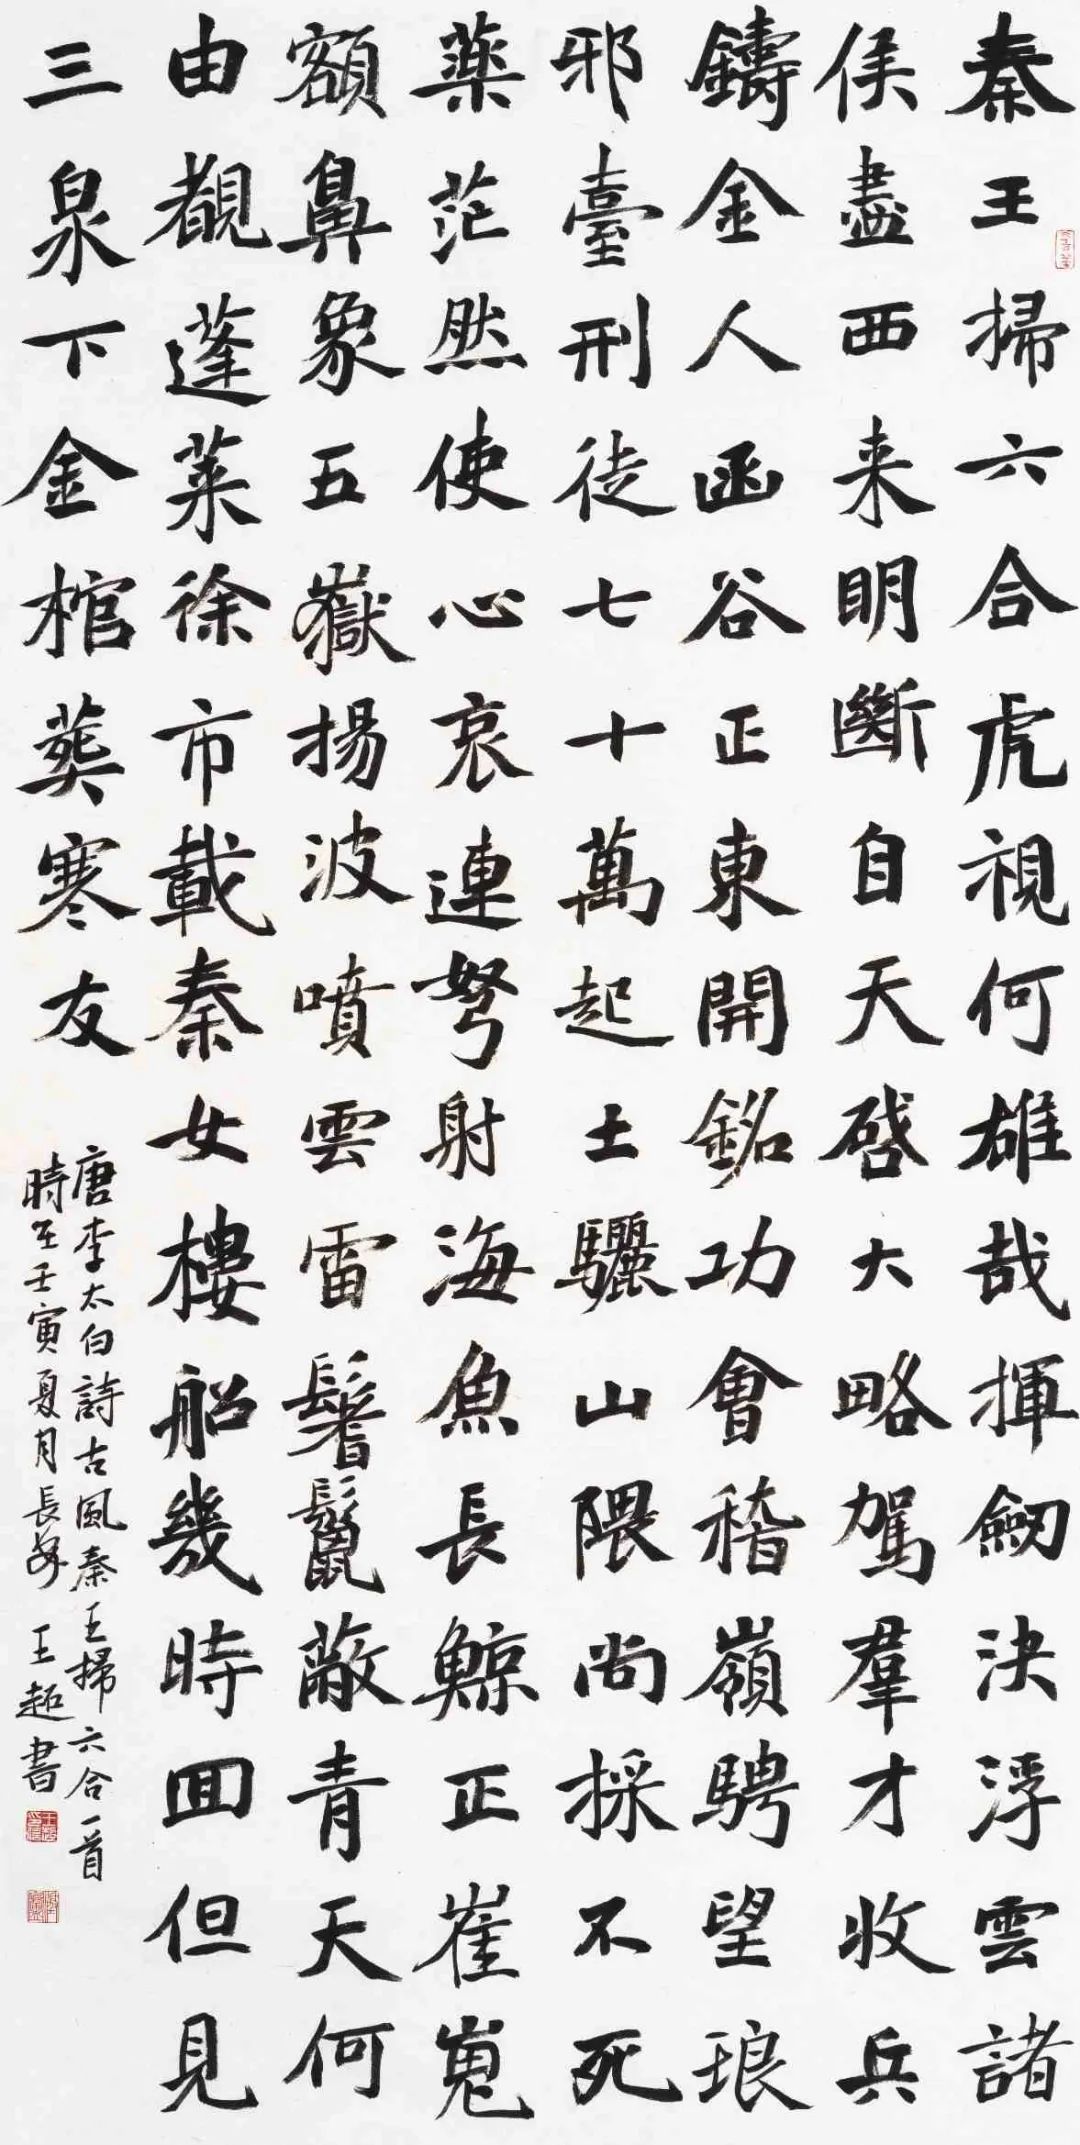 秦王掃六合虎視何雄哉揮劒決浮雲諸
侯盡西来明斷自天啓大略駕羣才收兵
鑄金人函谷正東開銘功會稽嶺騁望琅
邪臺刑徒七十萬起土驪山隈尚採不死
藥茫然使心哀連弩射海魚長鯨正崔嵬
額鼻象五嶽揚波噴雲雷鬐鬣蔽青天何
由覩蓬萊徐市載秦女樓船幾時囬但見
三泉下金棺葬寒友
唐李太白詩古風秦王掃六合一首
時在壬寅夏月長安王超書